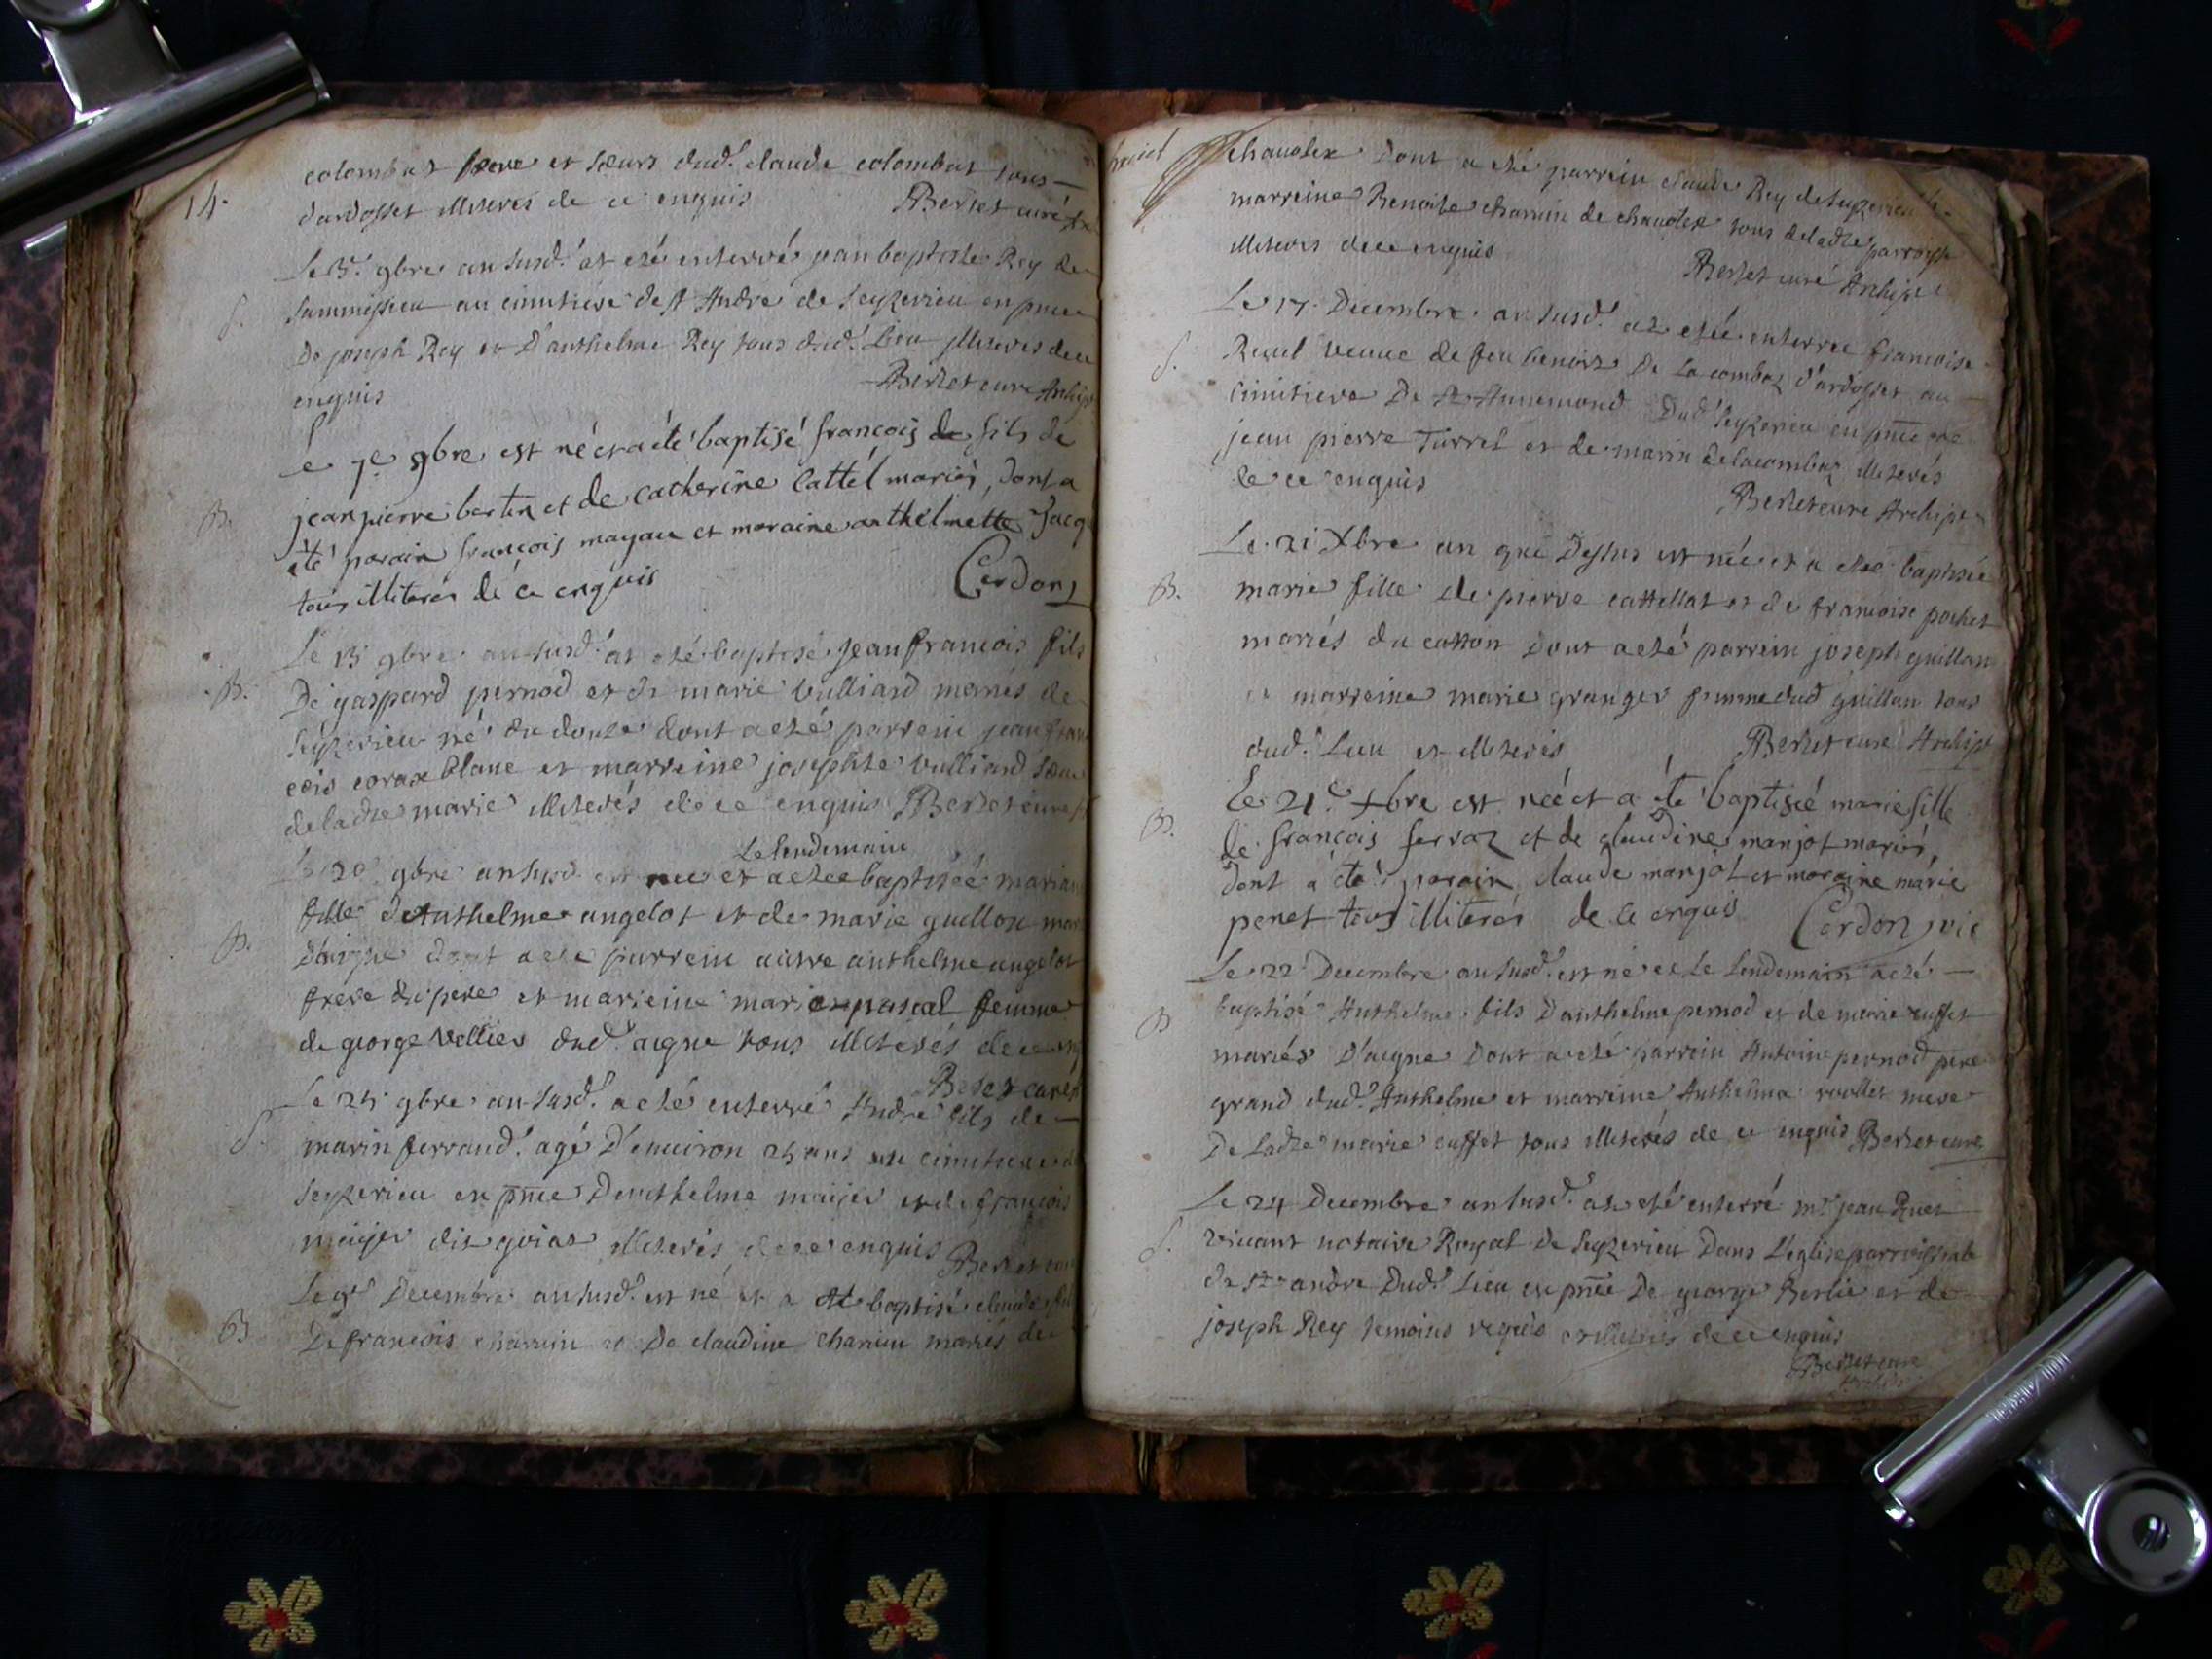 14.
colombat frere et soeurs dud. claude colombat tous
dardosset illiterés de ce enquis Berlet curé
Le 3. 9bre an susd. at eté enterré jean baptiste Rey de
S.
Sammissieu au cimitiere de St André de Seyzerieu en pnce
De joseph Rey et D'anthelme Rey tous dud. Lieu illiterés de ce
enquis Berlet curé Archip
Le 7e 9bre est né et a été baptisé françois de fils de
B.
jean pierre bertin et de catherine Cattel mariés, dont a
été parain françois mayau et maraine anthelmette Jacq
tous illiterés de ce enquis Cerdon
Le 13 9bre an susd. at eté baptisé jean francois fils
B.
De gaspard pernod et de marie Vulliard mariés de
Seyzerieu né du douze dont a eté parrein jean fran
cois corax blanc et marreine josephte Vulliard soeur
de ladte marie illiterés de ce enquis Berlet curé
Le lendemain
Le 20 9bre an susd. est née et a etee baptisée marian
fille d'Anthelme angelot et de marie guillon mar
B.
D'aigne dont a eté parrein autre anthelme angelot
frere du pere et marreine marie pascal femme
de george Vellier dud. aigne tous illiterés de ce enq
Berlet curé
Le 25 9bre an susd. a eté enterré André fils de
S.
marin ferrand. agé D'enuiron 25 ans au cimitiere de
Seyzerieu en pnce D'anthelme maijer et de francois
maijer dit goiat illiterés de ce enquis Berlet cur
Le 9e Decembre an susd. est né et a eté baptisé claude fils
B
De francois charuin et De claudine charuin mariés de
chauoley Dont a eté parrein claude Rey de Seyzerieu
marreine Benoite charuin de chauoley tous de ladte parroisse
illiterés de ce enquis Berlet curé Archip
Le 17. Decembre an susd. at etée enterree francoise
S.
Reuel veuue de feu benoit De Lacombaz d'ardosset au
cimitiere De St Annemond Dud Seyzerieu en pnce de
jean pierre Turrel et de marin delacombaz illiterés
de ce enquis Berlet cure Archip
Le 21 Xbre an que Dessus est née et a eté baptisée
B.
marie fille de pierre cattellat et de francoise pochet
mariés du catton Dont a eté parrein joseph guillan
et marreine marie granger femme dud guillan tous
dud. Lieu et illiterés Berlet curé Archip
Le 21e Xbre est née et a été baptiseé marie fille
B.
de françois ferraz et de claudine manjot mariés,
dont a été parain claude manjot et maraine marie
penet tous illiterés de ce enquis Cerdon vic
Le 22 Decembre an susd. est né et Le Lendemain a eté
B
baptisé Anthelme fils D'anthelme pernod et de marie cuffet
mariés D'aigne Dont a eté parrein Antoine pernod pere
grand dud. Anthelme et marreine Anthelma roollet mere
De Ladte marie cuffet tous illiterés de ce enquis Berlet curé
Le 24 Decembre an susd. at eté enterré mre jean Ruet
S.
viuant notaire Royal de Seyzerieu Dans L'eglise parroissiale
de st andre Dud. Lieu en pnce De george Berlie et de
joseph Rey temoins requis et illiterés de ce enquis
Berlet curé